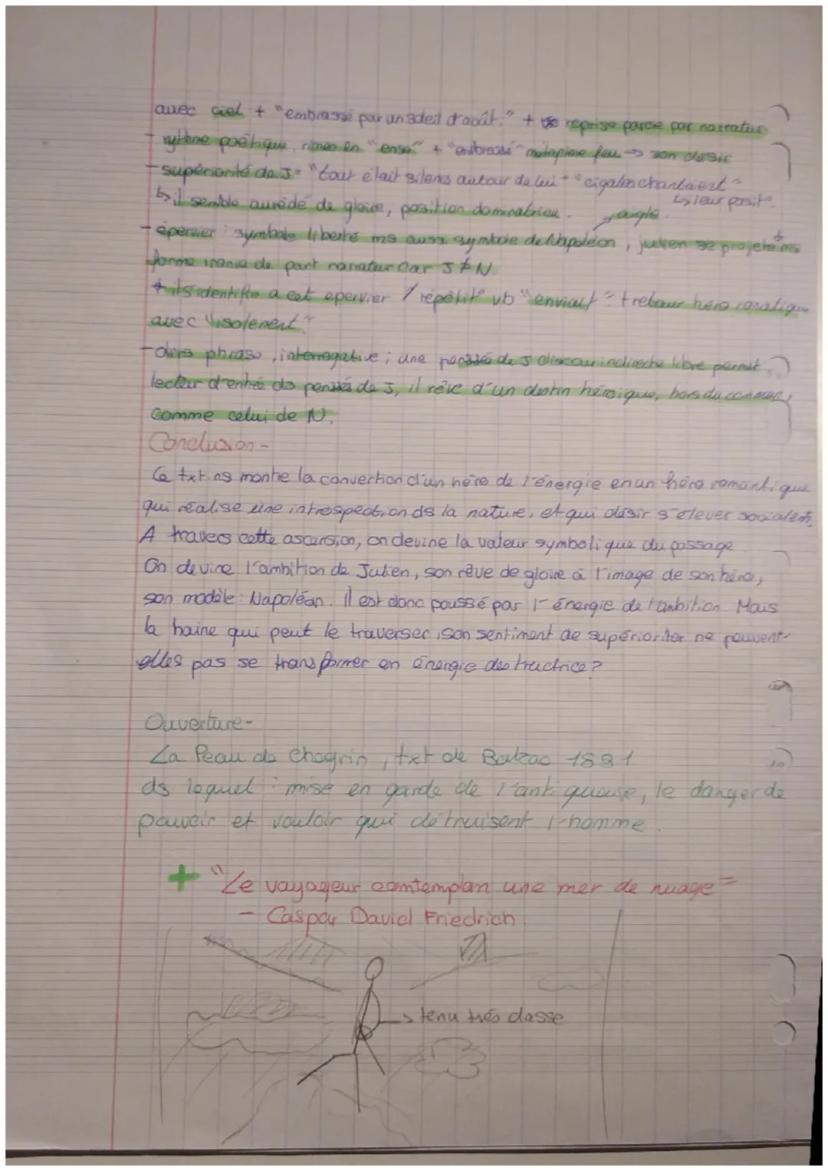 avec ciel + "embrasé par un soleil d'août." + reprise parole par narrateur
- rythme poétique, rimes en "ense" + "embrasé" métaphore feu → son désir
- supériorité de J = "tout était silens autour de lui" + "cigales chantaient"
↳ il semble auréolé de gloire, position dominatrice. ↳ leur posit°
→ aigle
- épervier : symbole liberté ms aussi symbole de Napoléon, julien se projette ms
forme ironie de part narrateur car J ≠ N
+ ils identifie a cet epervier / répétit° vb "enviait" + retour héro romatique
avec "isolement"
- dirs phrase, interrogative ; une pensée de J discour indirecte libre permet
lecteur d'entré ds pensés de J, il rêve d'un destin héroique, hors du commun,
comme celui de N.
Conclusion -
Ce txt ns montre la convertion d'un héro de l'énergie en un héro romantique
qui réalise une introspection ds la nature, et qui désir s'élever socialemt.
A travers cette ascension, on devine la valeur symbolique du passage
On devine l'ambition de Julien, son rêve de gloire à l'image de son héro,
son modèle : Napoléon. Il est donc poussé par l'énergie de l'ambition. Mais
la haine qui peut le traverser, son sentiment de supérioriter ne peuvent-
elles pas se transformer en énergie destructrice ?
Ouverture -
La Peau de Chagrin, txt de Balzac 1831
ds lequel : mise en garde de l'antiquaire, le danger de
pouvoir et vouloir qui détruisent l'homme.
+ "Le voyageur comtemplan une mer de nuage"
- Caspar David Friedrich
→ tenu très classe